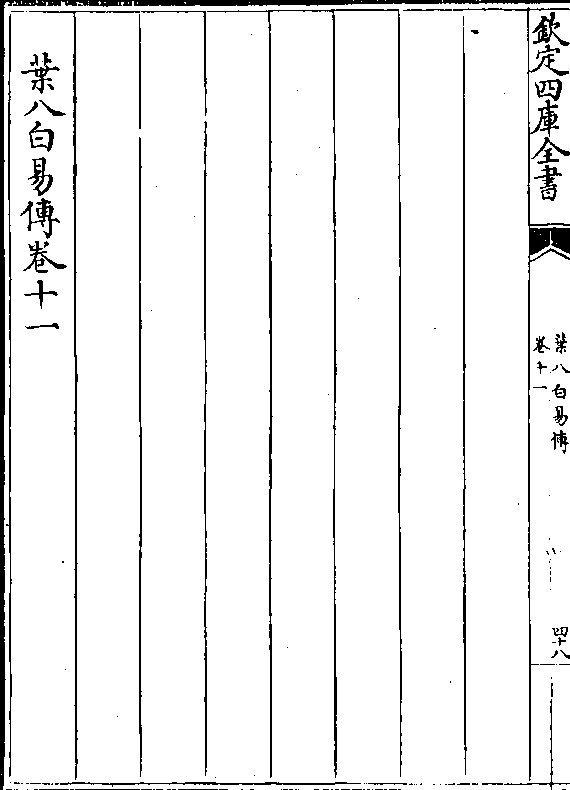 欽定四庫全書
葉八白易傳
卷十一
四十八
葉八白易傳卷十一